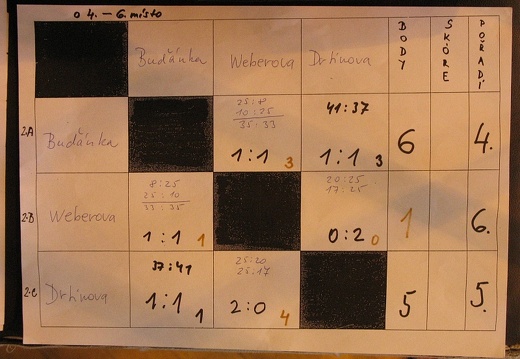 o 4. – 6. místo
Buďánka Weberova Drtinova BODY SKÓRE POŘADÍ
2.A Buďánka
25:8
10:25
35:33
1:1 3
41:37
1:1 3
6 4.
2.B Weberova
8:25
25:10
33:35
1:1 1
20:25
17:25
0:2 0
1 6.
2.C Drtinova
37:41
1:1 1
25:20
25:17
2:0 4
5 5.